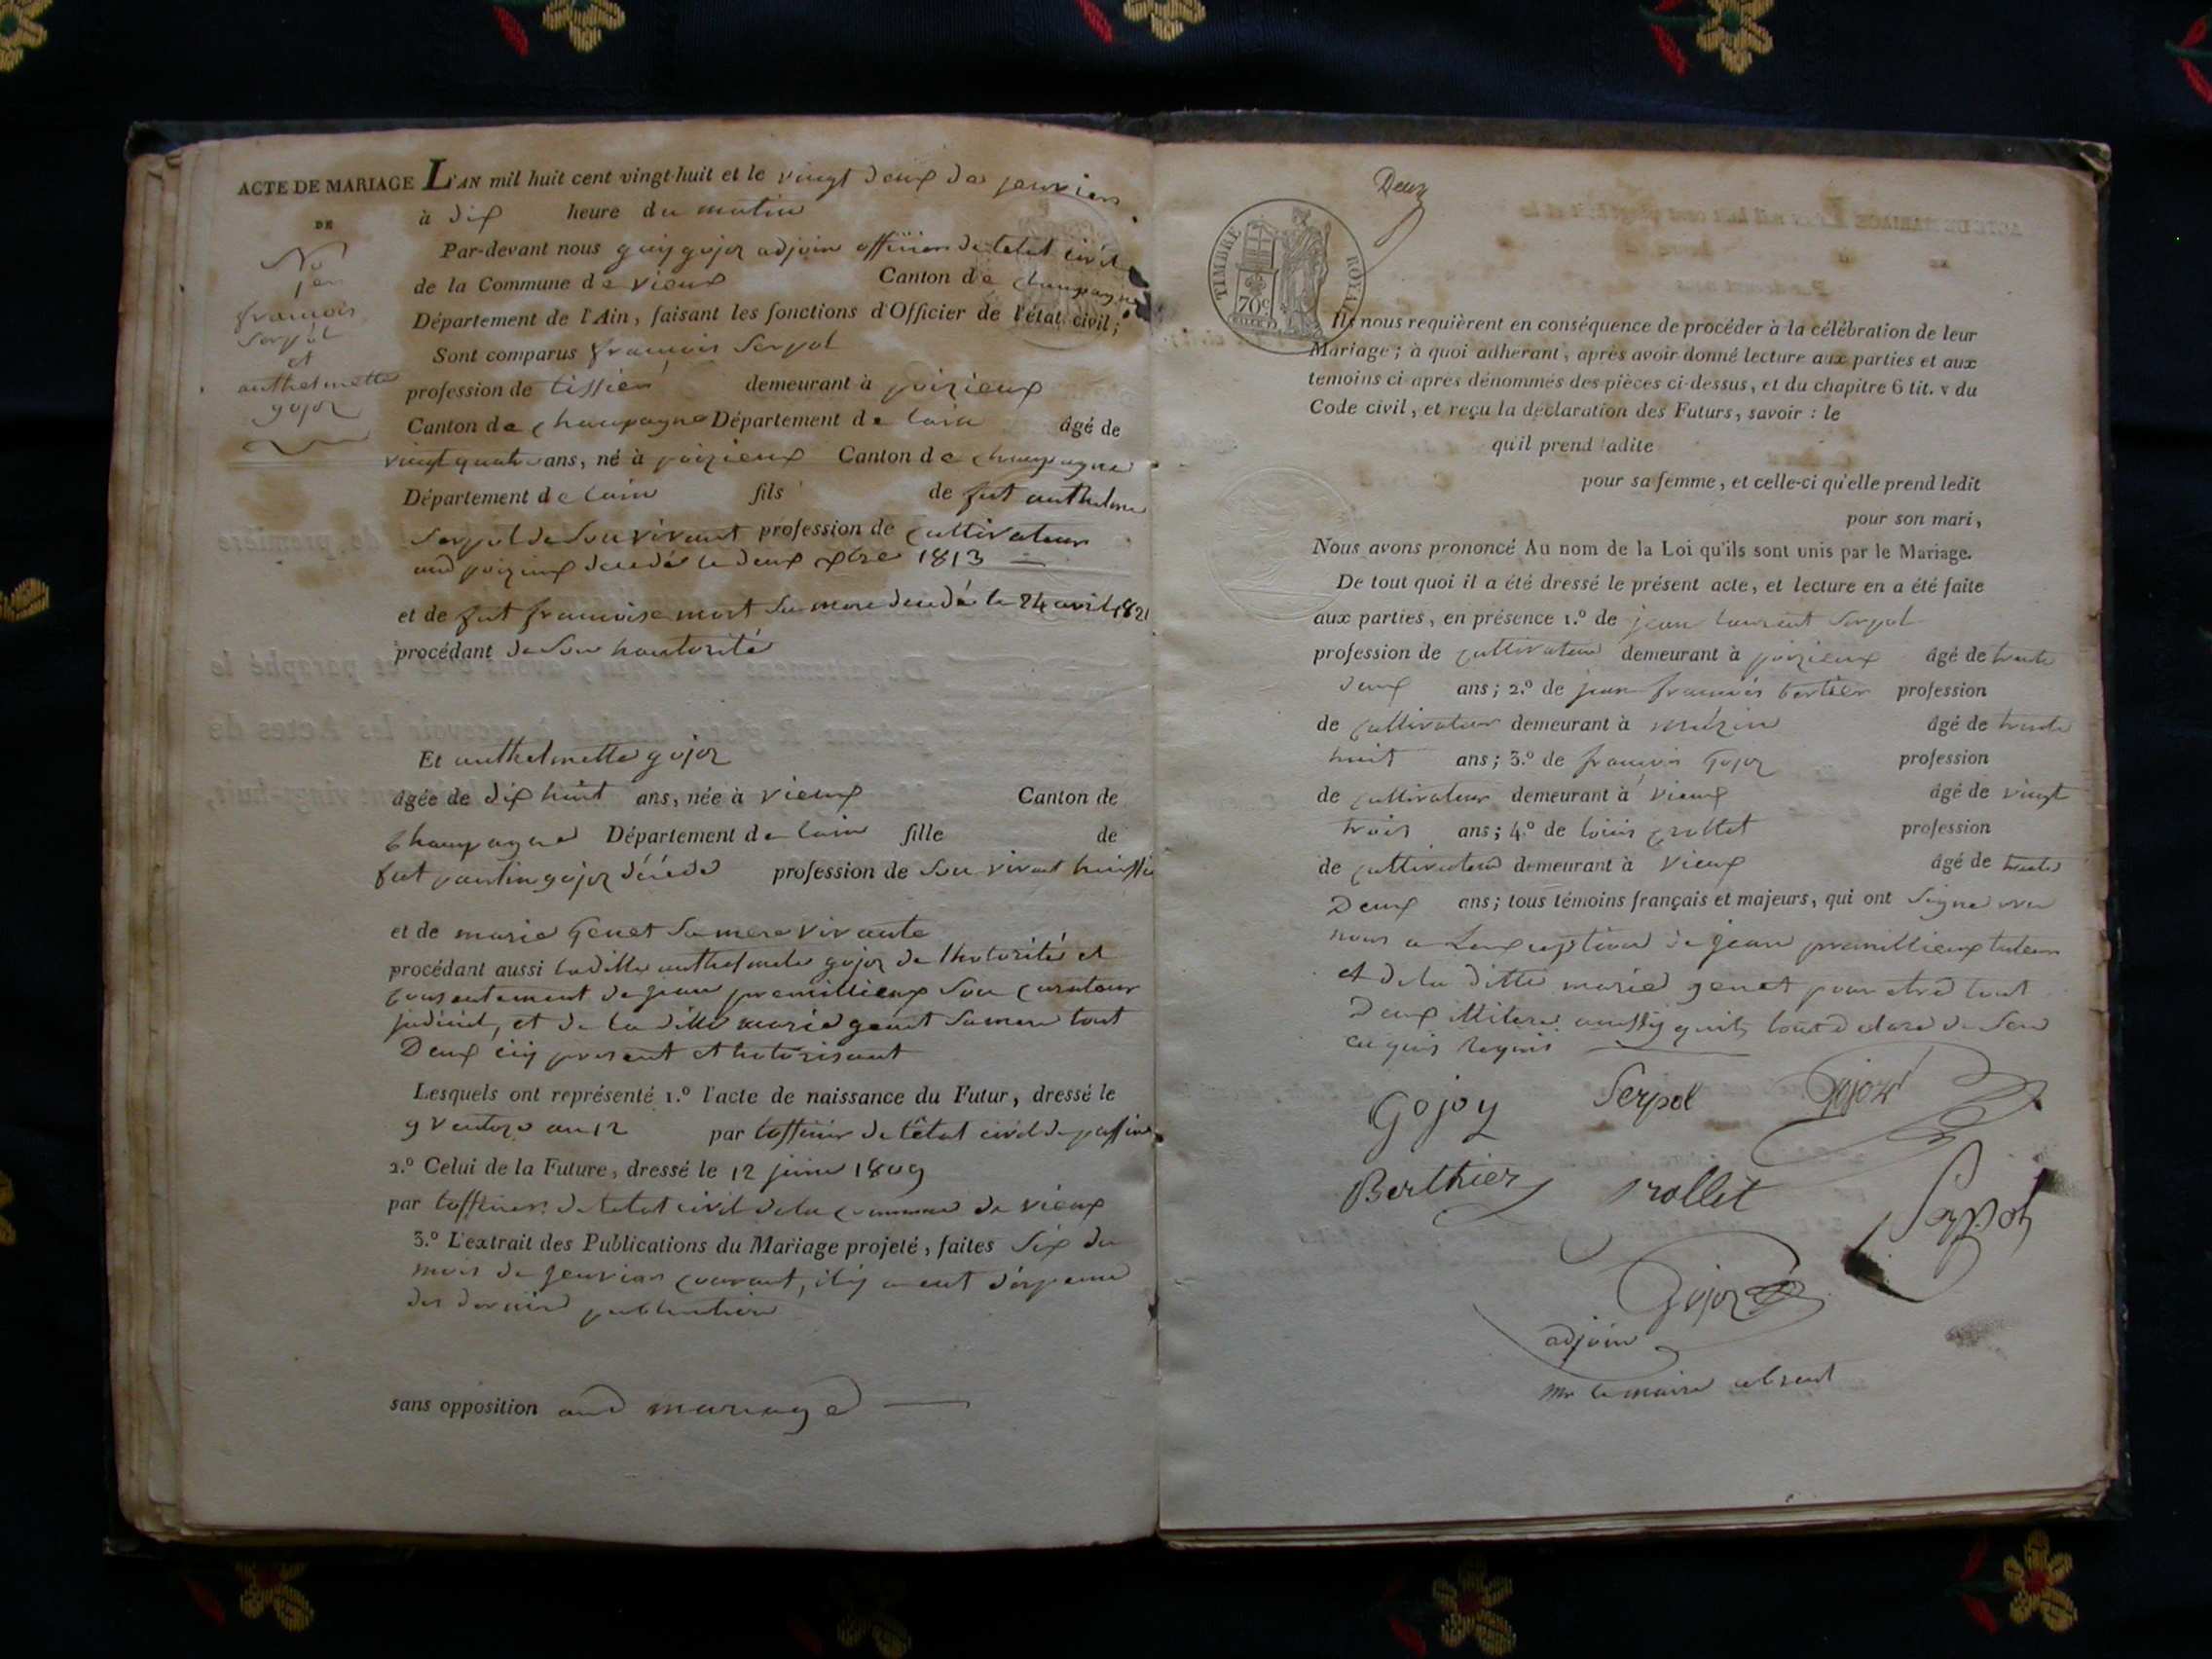 ACTE DE MARIAGE
DE
No
1er
francois
Serpol
et
anthelmette
gojoz
L'AN mil huit cent vingt-huit et le vingt deux de janvier
à dix heure du matin
Par-devant nous guy gojoz adjoin officier de letat civil
de la Commune de vieux Canton de champagne
Département de l'Ain, faisant les fonctions d'Officier de l'état civil;
Sont comparus francois Serpol
profession de tissier demeurant à poizieux
Canton de champagne Département de lain âgé de
vingt quatre ans, né à poizieux Canton de champagne
Département de lain fils de fut anthelme
Serpol de Son vivant profession de cultivateur
aud poizieux decedé le deux 1813
et de fut francoise mort Sa mere decedé le 24 avril 1821
procédant de Son hautorité
Et anthelmette gojoz
âgée de dix huit ans, née à vieux Canton de
champagne Département de lain fille de
fut gojoz décédé profession de Son vivant huissie
et de marie Genet Sa mere vivante
procédant aussi ladille anthelmette gojoz de lhotorité et
consentement de jean premillieux Son curateur
judiciel, et de la dille marie genet Sa mere tout
Deux ciy present et hotorisant
Lesquels ont représenté 1.º l'acte de naissance du Futur, dressé le
9 ventoze an 12 par lofficier de létat civil de passin
2.º Celui de la Future, dressé le 12 juin 1809
par lofficier de letat civil dela commune de vieux
3.º L'extrait des Publications du Mariage projeté, faites Six du
mois de janvier courant, il y a eut
des derniere publication
sans opposition aud mariage
Deux
TIMBRE ROYAL
70 c
Ils nous requièrent en conséquence de procéder à la célébration de leur
Mariage; à quoi adhérant, après avoir donné lecture aux parties et aux
temoins ci-après dénommés des pièces ci-dessus, et du chapitre 6 tit. v du
Code civil, et reçu la déclaration des Futurs, savoir : le
qu'il prend ladite
pour sa femme, et celle-ci qu'elle prend ledit
pour son mari,
Nous avons prononcé Au nom de la Loi qu'ils sont unis par le Mariage.
De tout quoi il a été dressé le présent acte, et lecture en a été faite
aux parties, en présence 1.º de jean laurent Serpol
profession de cultivateur demeurant à poizieux âgé de trente
deux ans; 2.º de jean francois bertier profession
de cultivateur demeurant à âgé de trente
huit ans; 3.º de francois Gojoz profession
de cultivateur demeurant à vieux âgé de vingt
trois ans; 4.º de louis profession
de cultivateur demeurant à vieux âgé de trente
Deux ans; tous témoins français et majeurs, qui ont Signe avec
nous a Lexception de jean premillieux tuteur
et de la ditte marie genet pour etre tout
Deux illitere aussy quils lont declare de Ser
ce quis
Gojoy Serpol Gojoz
Berthier rollet Serpol
Gojoz
adjoin
Mr le maire absent